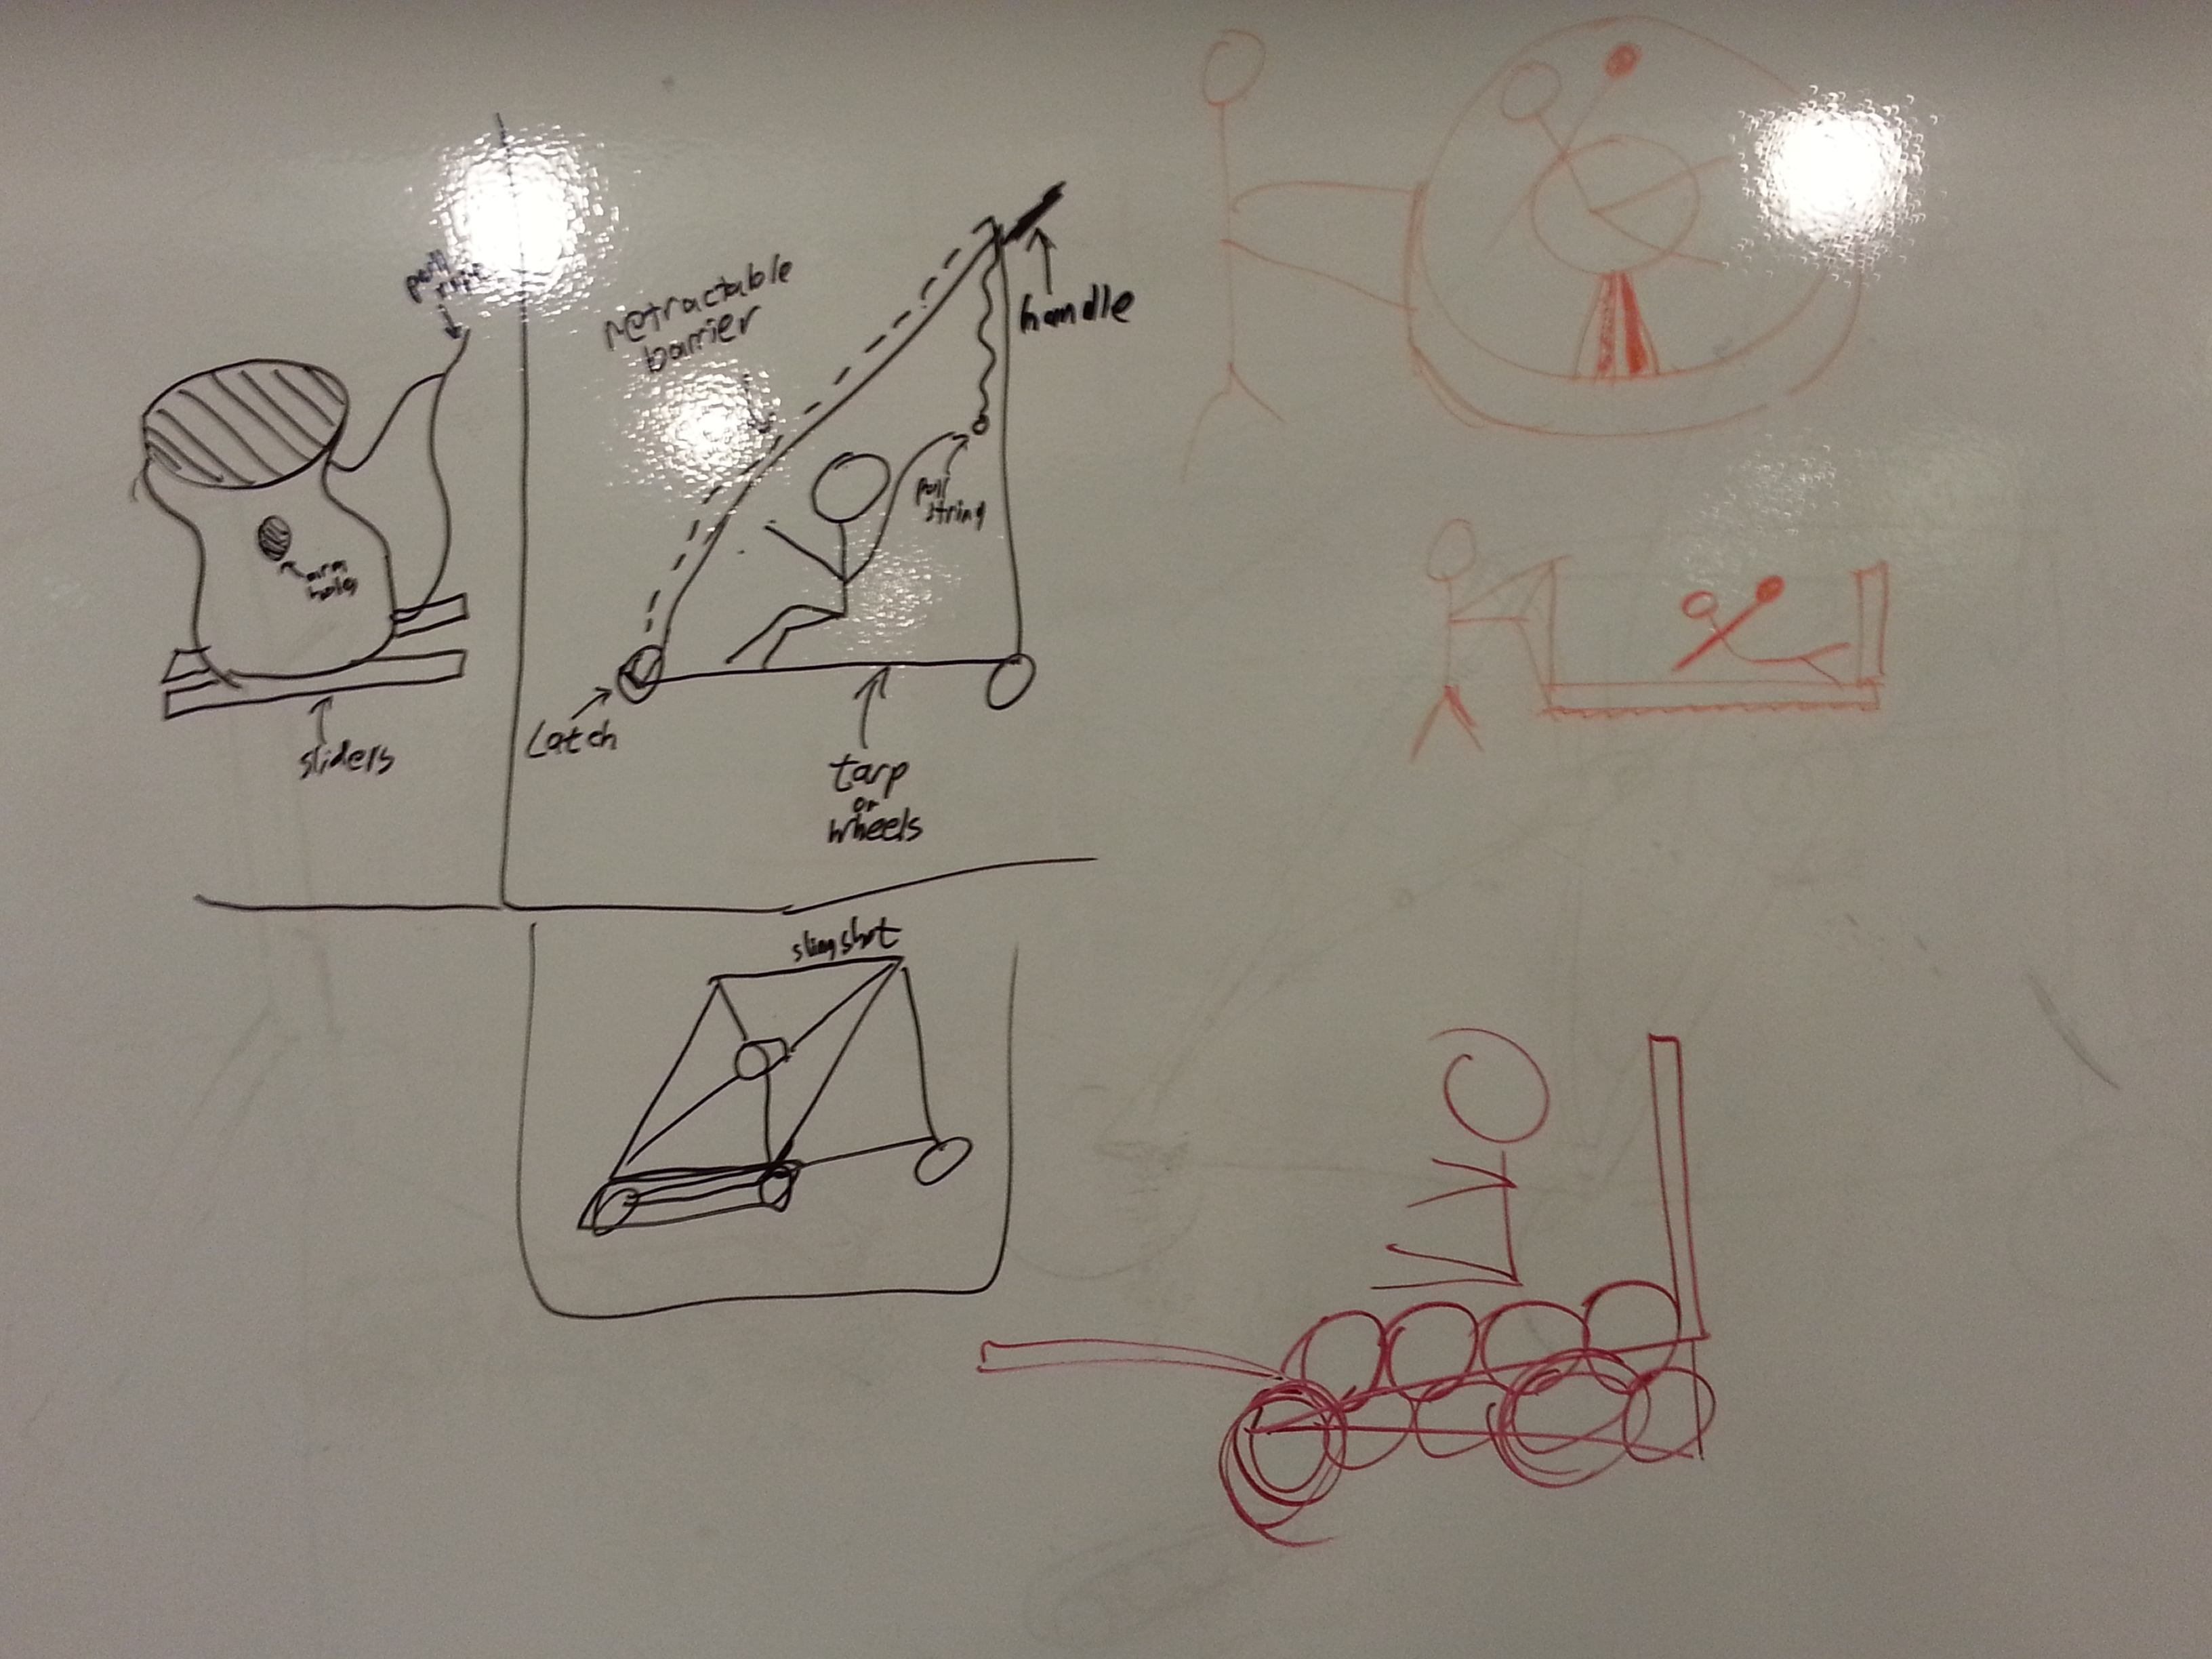 pull
arm
holes
sliders
retractable
barrier
handle
pull
string
Latch
tarp
or
wheels
slingshot